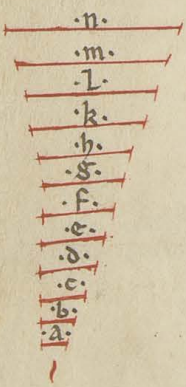 ·n·
·m·
·l·
·k·
·h·
·g·
·f·
·e·
·d·
·c·
·b·
·a·